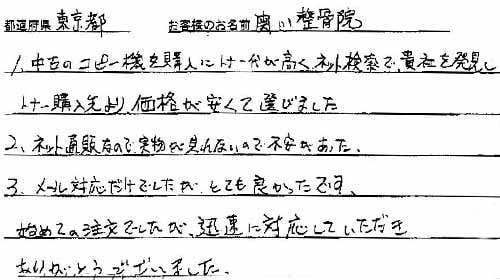 都道府県 東京都 お客様のお名前 整骨院
1、中古のコピー機を購入にトナー代が高く、ネット検索で、貴社を発見し
トナー購入先より、価格が安くて選びました
2、ネット通販なので実物が見れないので不安があった、
3、メール対応だけでしたが、とても良かったです、
始めての注文でしたが、迅速に対応していただき
ありがとうございました、